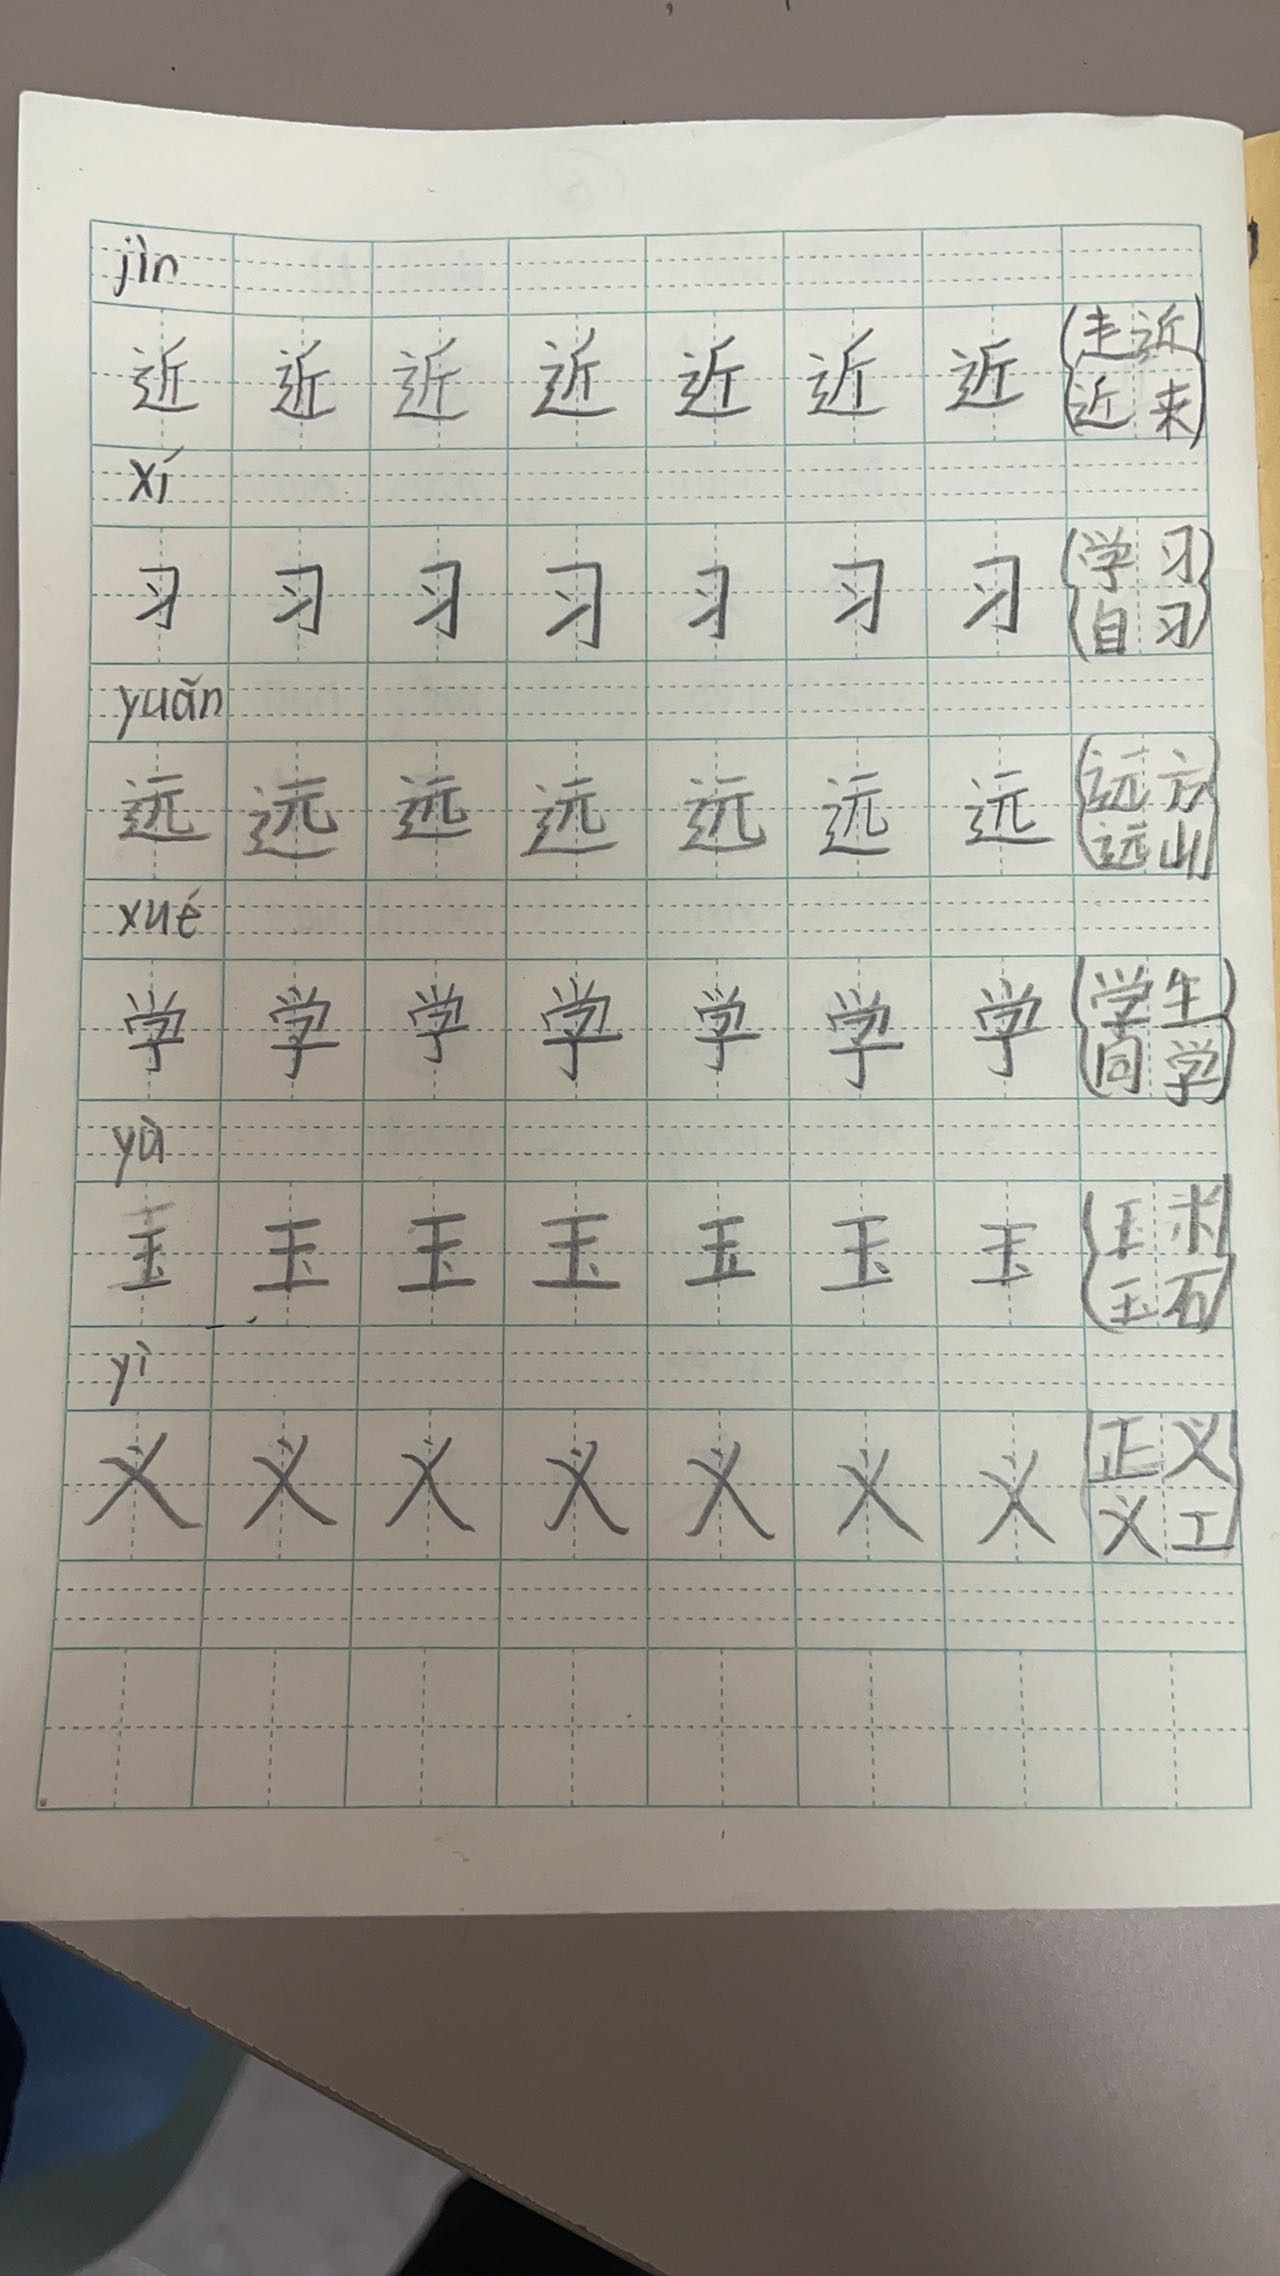 jìn
近 近 近 近 近 近 近 (走近
近来)
xí
习 习 习 习 习 习 习 (学习
自习)
yuǎn
远 远 远 远 远 远 远 (远方
远山)
xué
学 学 学 学 学 学 学 (学生
同学)
yù
玉 玉 玉 玉 玉 玉 玉 (玉米
玉石)
yì
义 义 义 义 义 义 义 (正义
义工)